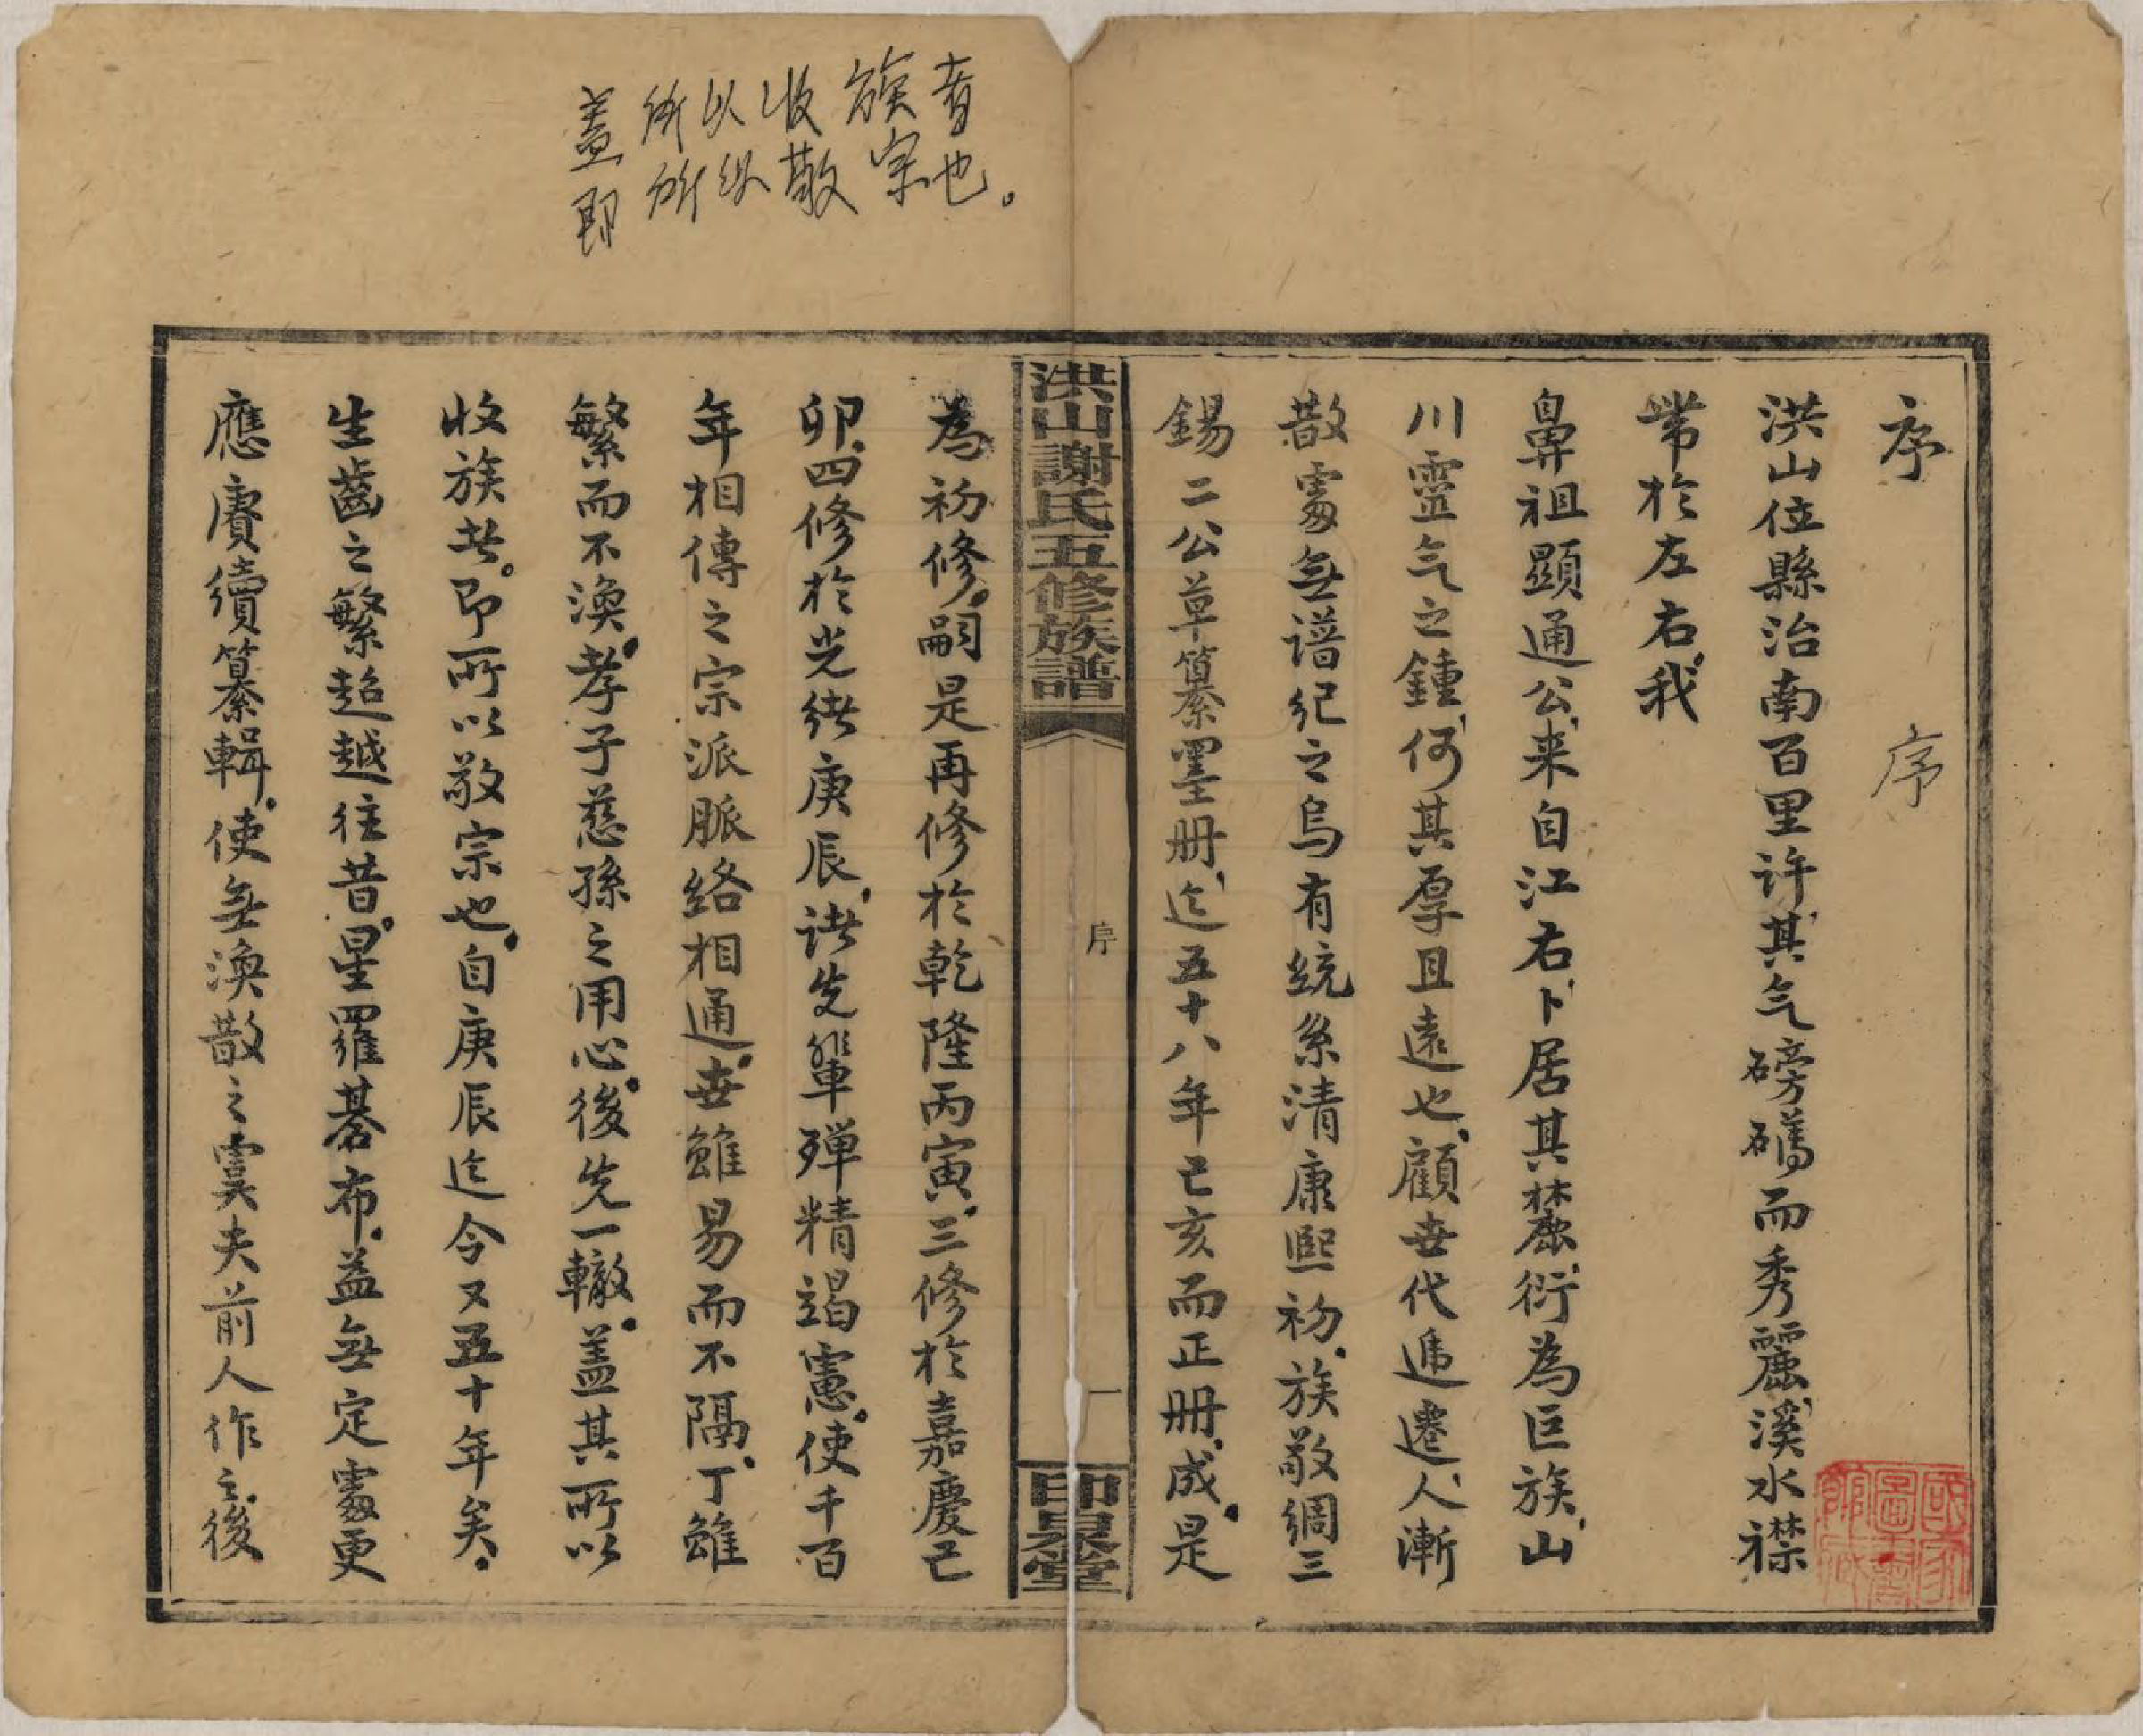 序
序
洪山位縣治南百里許其气磅礴而秀麗溪水襟
帶於左右我
鼻祖顯通公来自江右卜居其麓衍為巨族山
川靈气之鍾何其厚且遠也顧世代遞遷人漸
散處無譜纪之烏有统系清康熙初族敬綢三
錫二公草纂墨冊迄五十八年己亥而正冊成是
洪山謝氏五修族譜
序
一
印泉堂
為初修嗣是再修於乾隆丙寅三修於嘉慶己
卯四修於光绪庚辰諸先輩殫精竭慮使千百
年相傳之宗派脈络相通世雖易而不隔丁雖
繁而不渙孝子慈孫之用心後先一轍。盖其所以
收族者。即所以敬宗也自庚辰迄今又五十年矣。
生齒之繁超越往昔星羅碁布益無定處更
應賡續纂輯使無渙散之虞夫前人作之後
盖所以收族者
即所以敬宗也。
國家圖書館藏